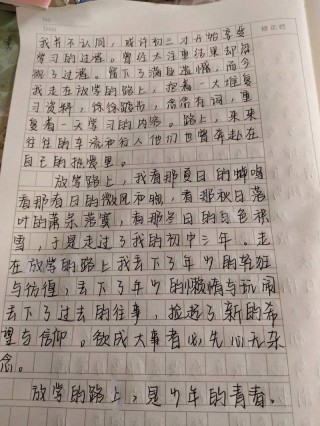 我并不认同, 或许初三才开始享受
学习的过程。曾经太注重结果却忽
视了过程。留下了满是遗憾,而今
我走在放学的路上,抱着一大堆复
习资料,惊惊踏步,念念有词,重
复着一天学习的内容。路上,来来
往往的车流和行人他们也曾奔赴在
自己的热爱里。
放学路上,我看那夏日的蝉鸣
看那春日的微风和煦,看那秋日落
叶的萧条落寞,看那冬日的白色积
雪,于是走过了我的初中三年。走
在放学的路上我丢下了年少的轻狂
与彷徨,丢下了年少的懒惰与玩闹
丢下了过去的往事,捡起了新的希
望与信仰。欲成大事者必先心无杂
念。
放学的路上,是少年的青春。